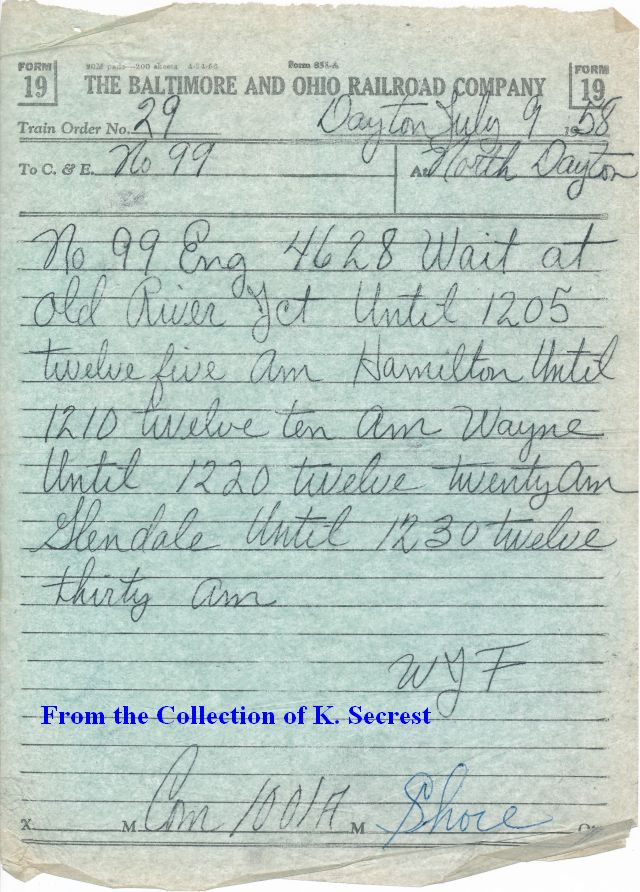 FORM 19
20M pads—200 sheets 4-24-56 Form 855-A
THE BALTIMORE AND OHIO RAILROAD COMPANY
FORM 19
Train Order No. 29 Dayton July 9 1958
To C. & E. No 99 At North Dayton
No 99 Eng 4628 Wait at
Old River Jct Until 1205
twelve five am Hamilton Until
1210 twelve ten am Wayne
Until 1220 twelve twenty am
Glendale Until 1230 twelve
thirty am
WJF
From the Collection of K. Secrest
X M Com 1001 M Shore Opr